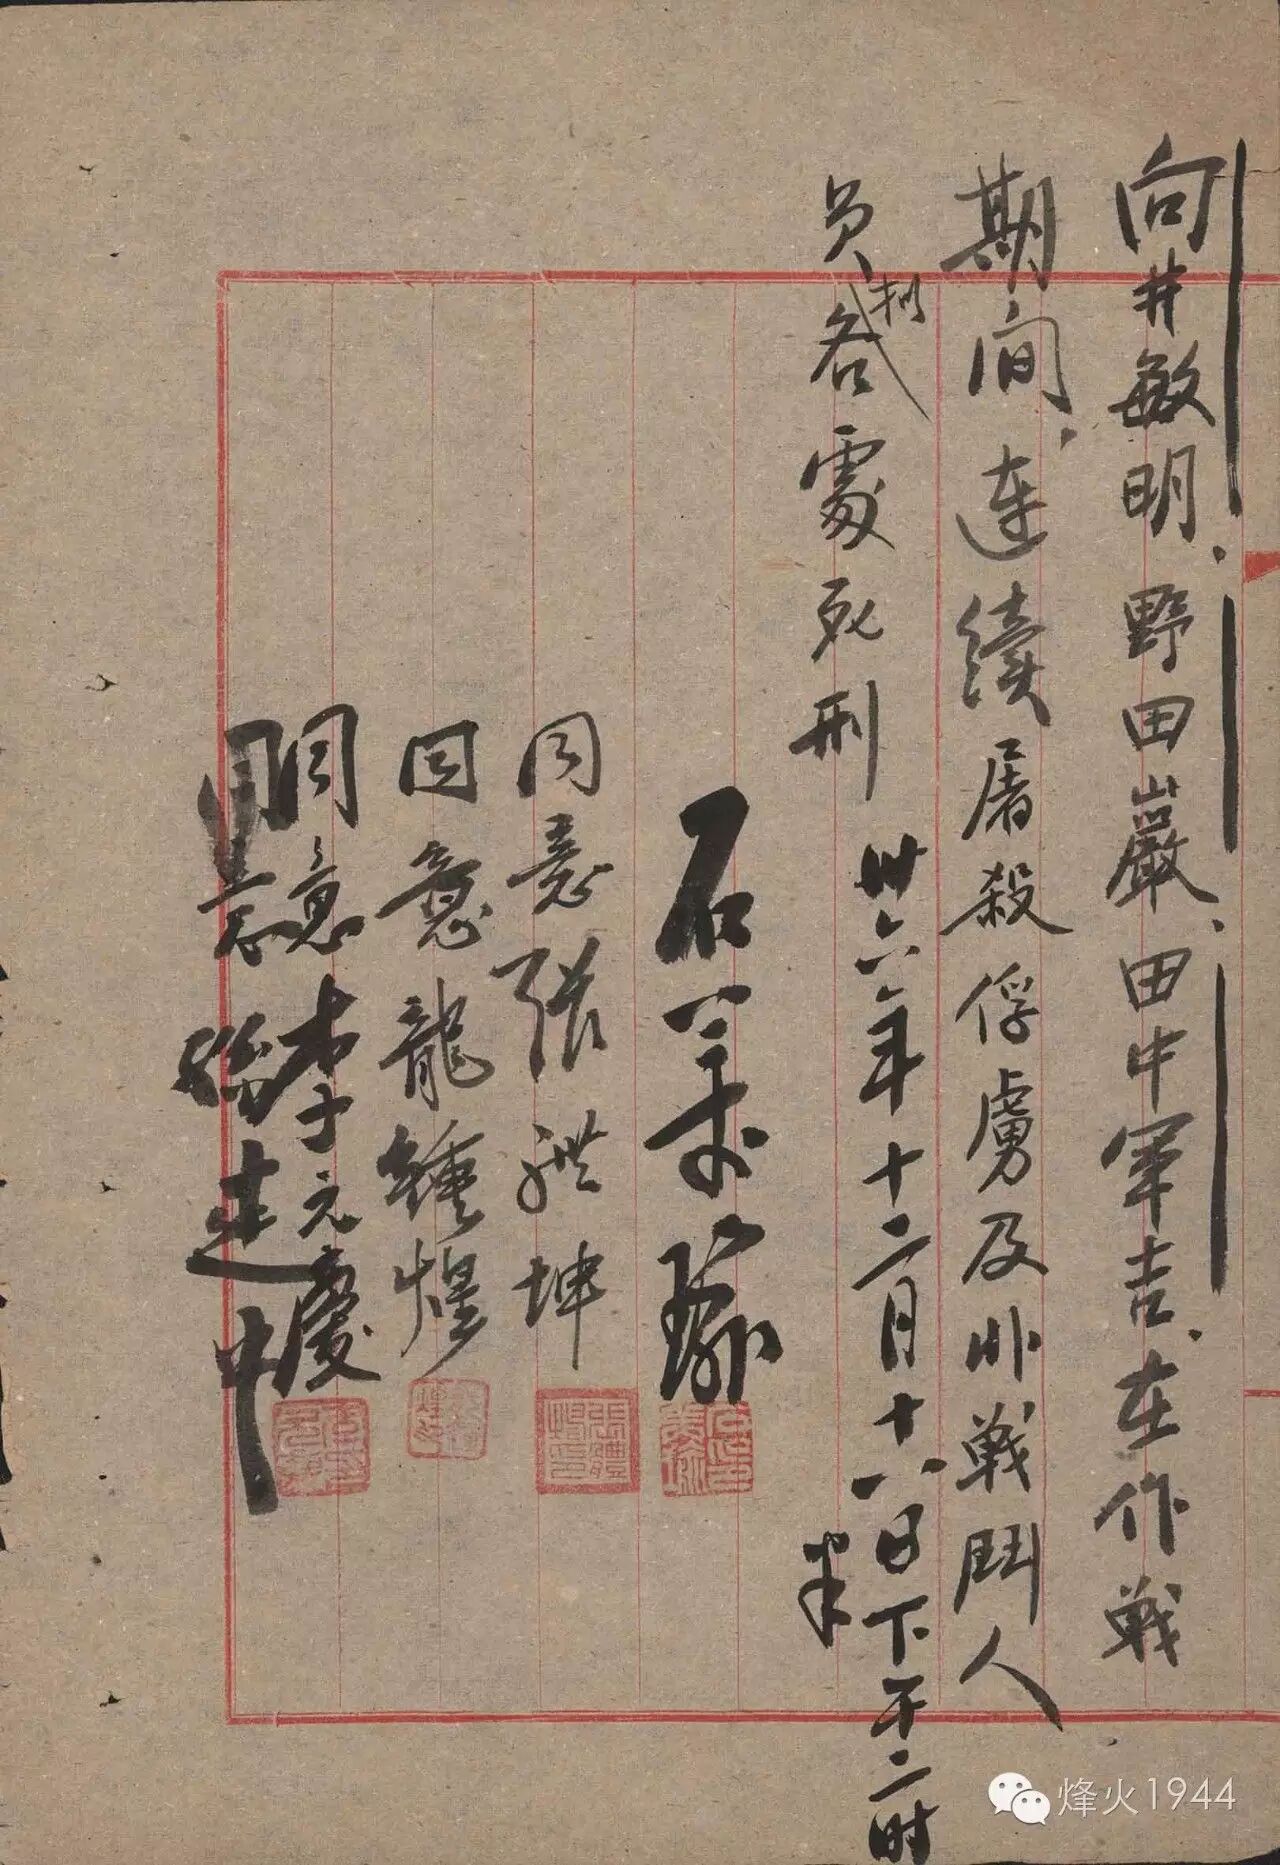 向井敏明、野田巖、田中軍吉、在作戰
期间、連續屠殺俘虜及非戰鬥人
员各處死刑
卅六年十二月十八日下午二时
半
石美瑜
同意 張體坤
同意 龍鍾煌
同意 李元慶
同意 孫建中
烽火1944